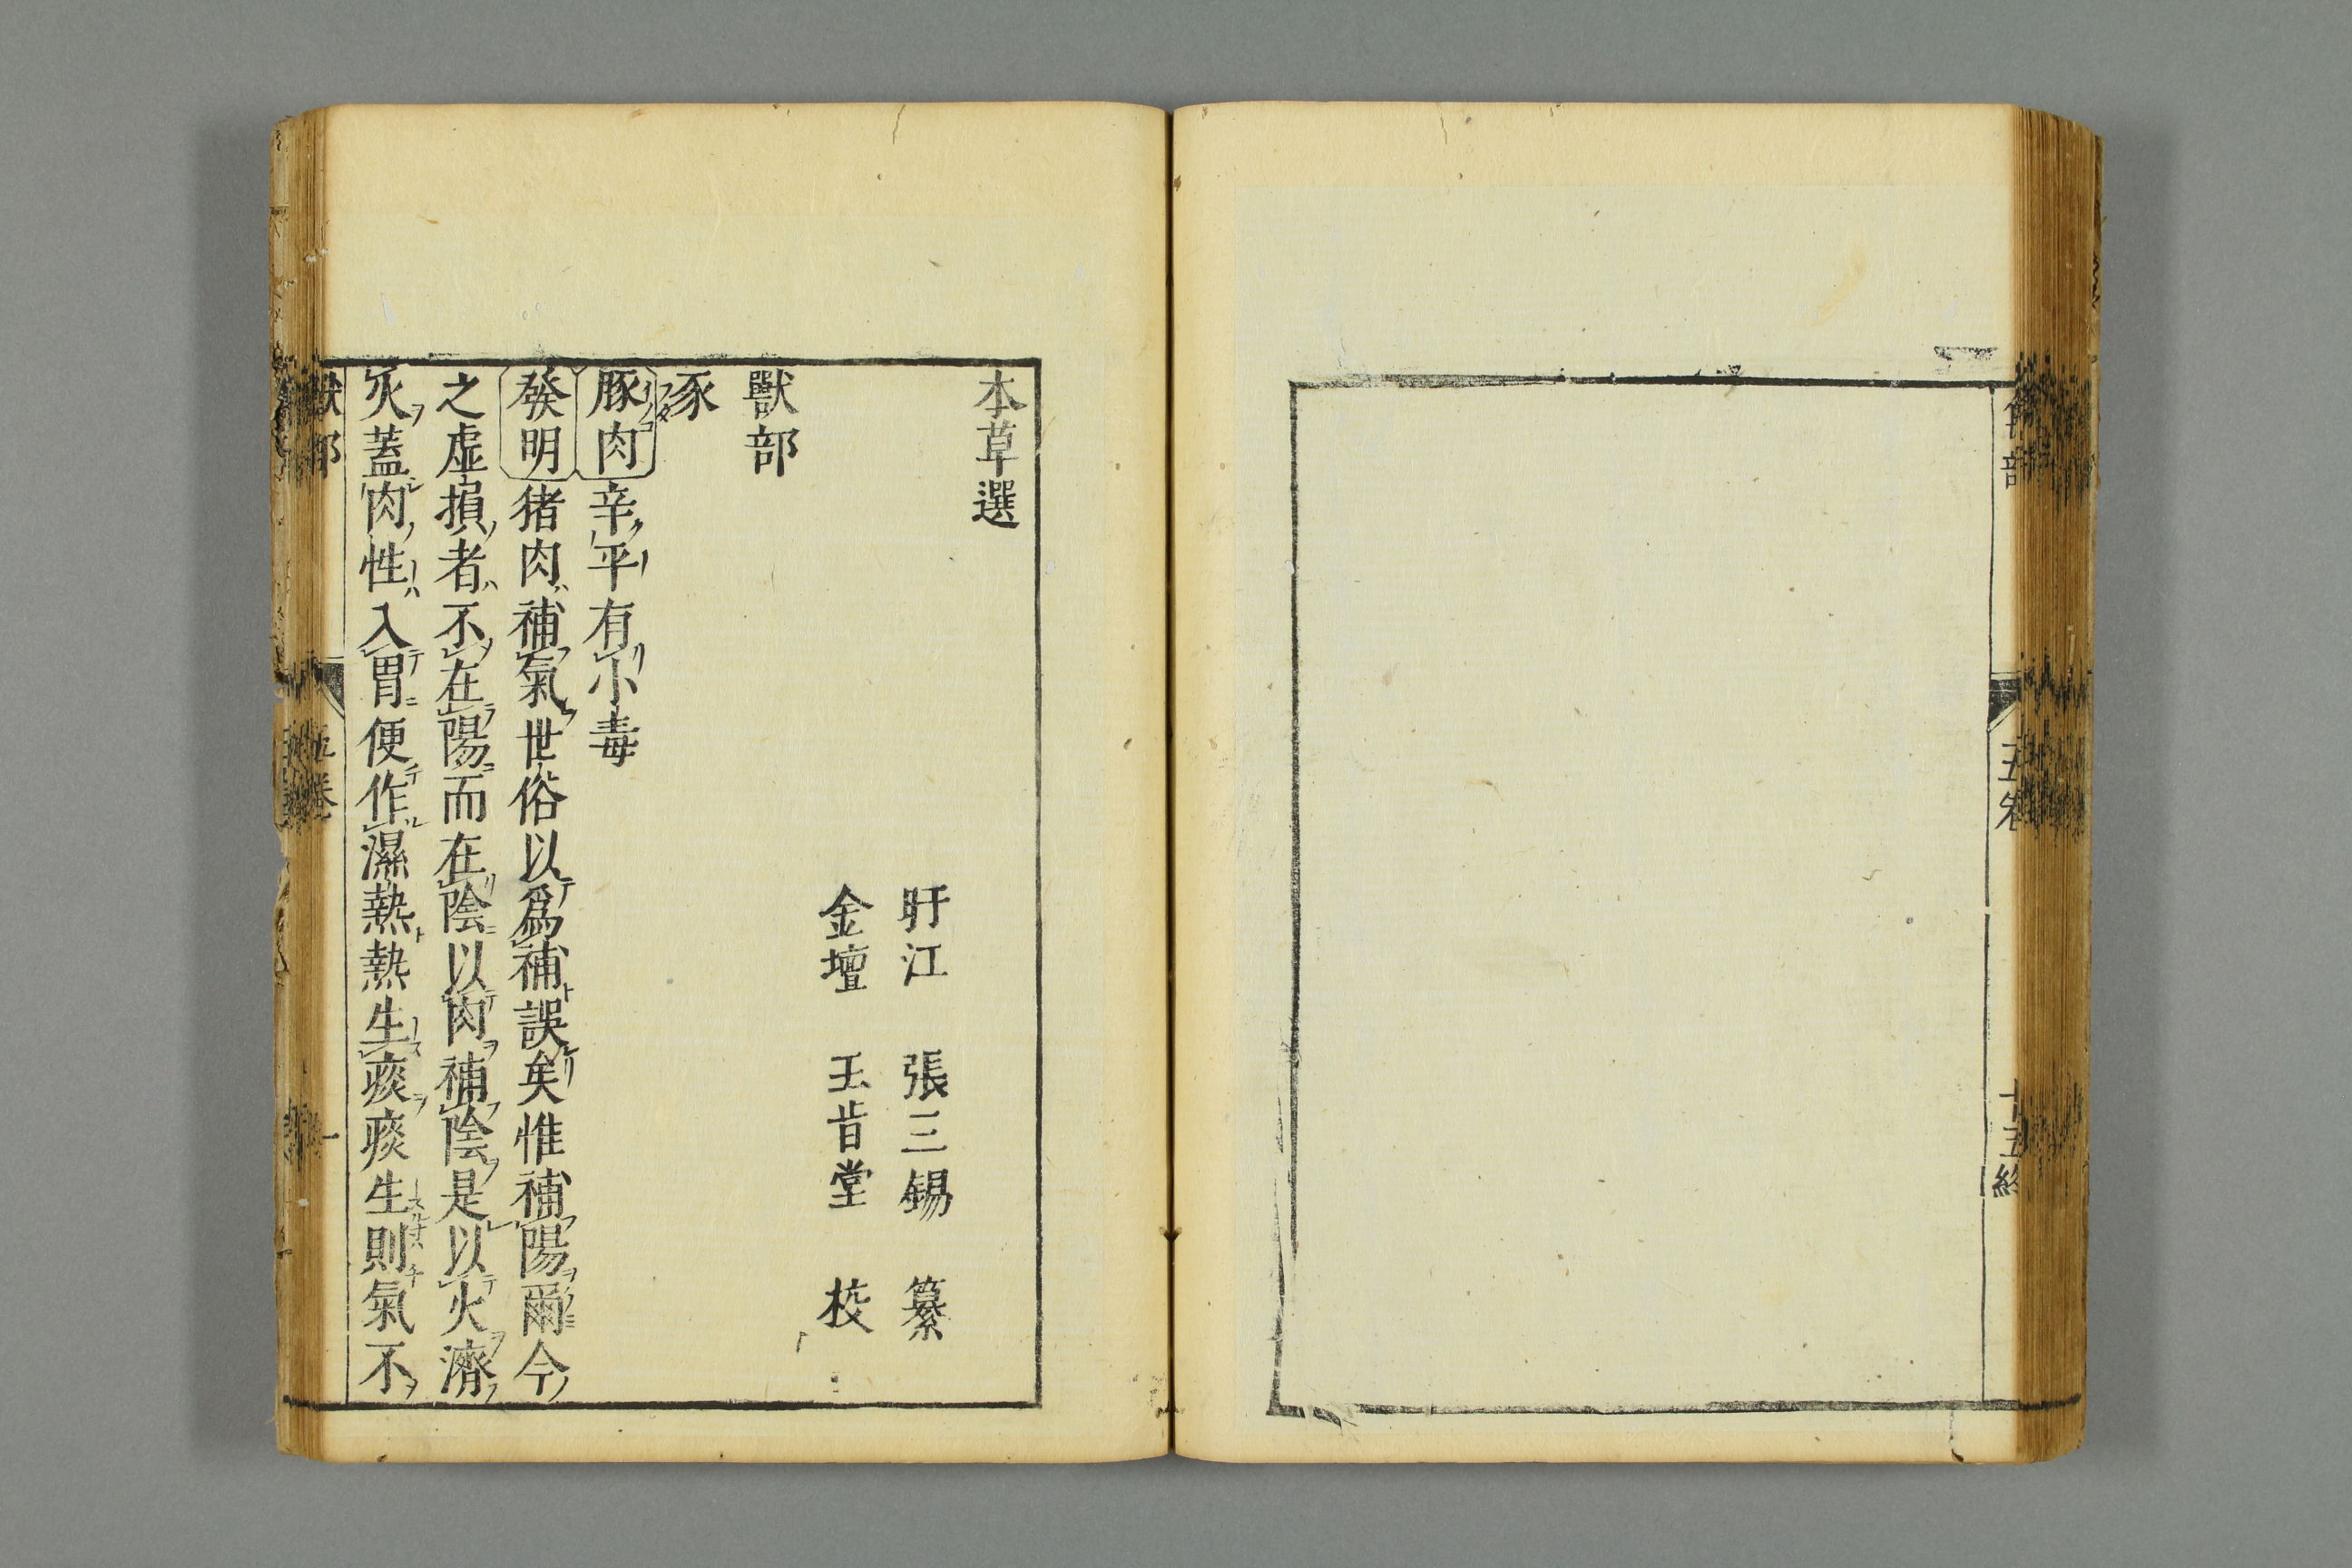 五卷
十五終
本草選
盱江 張三錫 纂
金壇 王肯堂 校
獸部
豕
豚肉辛平有小毒
發明猪肉補氣世俗以爲補誤矣惟補陽爾今
之虛損者不在陽而在陰以肉補陰是以火濟
火蓋肉性入胃便作濕熱熱生痰痰生則氣不
獸部
五卷
一